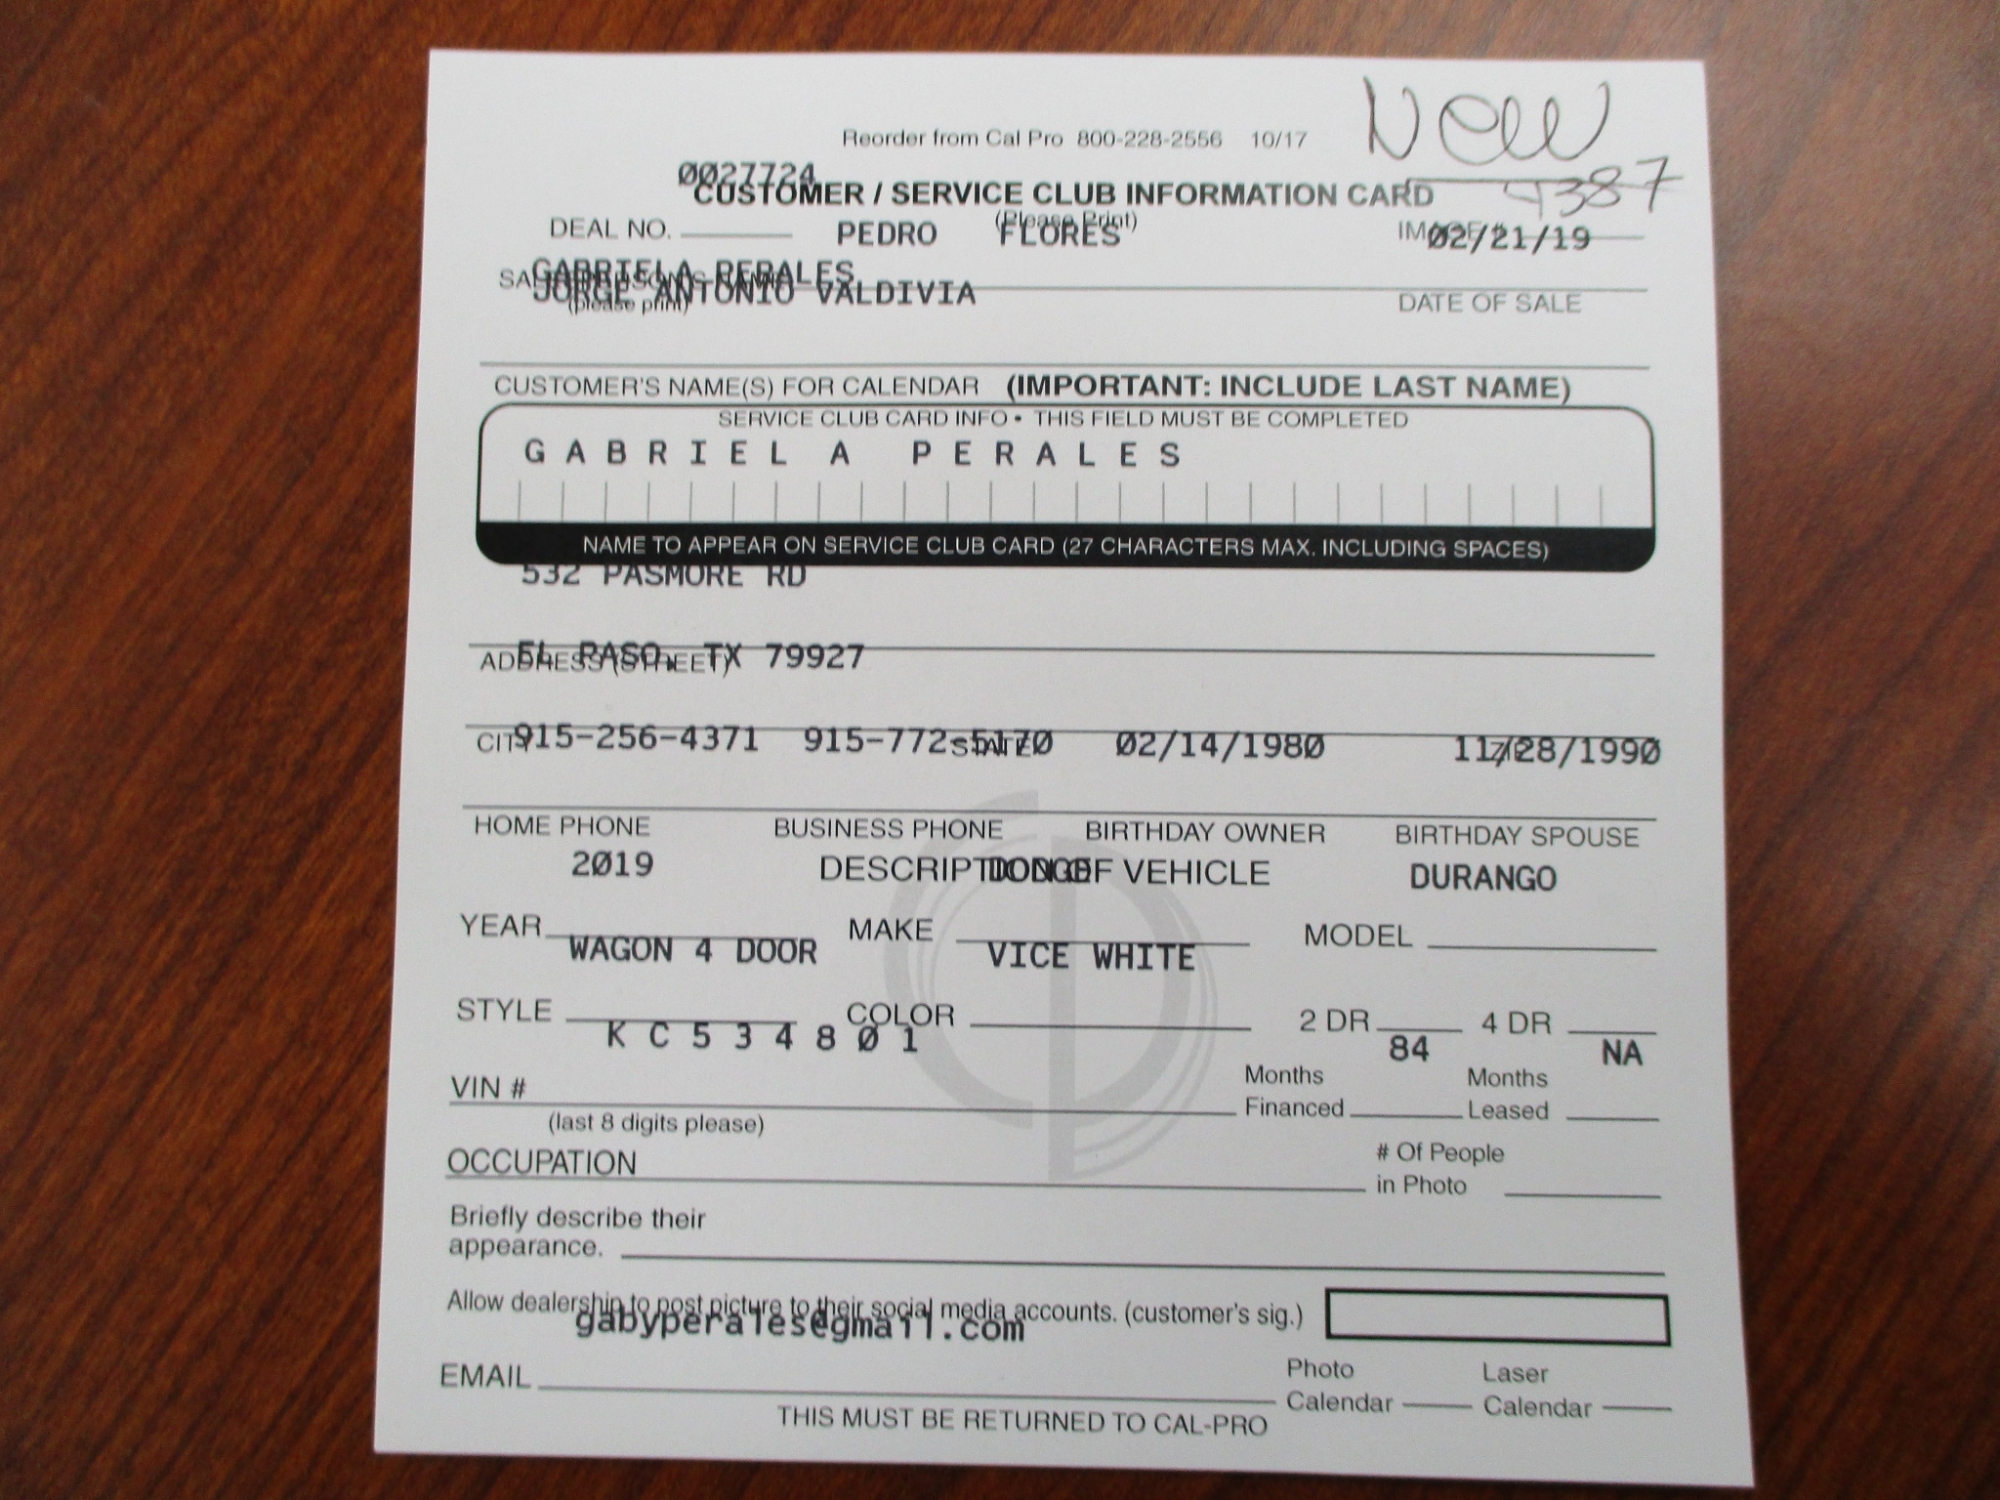 New
Reorder from Cal Pro 800-228-2556 10/17
4387
0027724
CUSTOMER / SERVICE CLUB INFORMATION CARD
(Please Print)
DEAL NO. PEDRO FLORES IMAGE # 02/21/19
GABRIELA PERALES
SALESPERSON'S NAME
JORGE ANTONIO VALDIVIA
(please print) DATE OF SALE
CUSTOMER'S NAME(S) FOR CALENDAR (IMPORTANT: INCLUDE LAST NAME)
SERVICE CLUB CARD INFO • THIS FIELD MUST BE COMPLETED
GABRIELA PERALES
NAME TO APPEAR ON SERVICE CLUB CARD (27 CHARACTERS MAX. INCLUDING SPACES)
532 PASMORE RD
EL PASO, TX 79927
ADDRESS (STREET)
915-256-4371 915-772-5170 02/14/1980 11/28/1990
CITY STATE ZIP
HOME PHONE BUSINESS PHONE BIRTHDAY OWNER BIRTHDAY SPOUSE
2019 DODGE DURANGO
DESCRIPTION OF VEHICLE
YEAR MAKE MODEL
WAGON 4 DOOR VICE WHITE
STYLE COLOR 2 DR 4 DR
KC534801 84 NA
VIN # Months Financed Months Leased
(last 8 digits please)
OCCUPATION # Of People in Photo
Briefly describe their
appearance.
Allow dealership to post picture to their social media accounts. (customer's sig.)
gabyperales@gmail.com
EMAIL Photo Calendar Laser Calendar
THIS MUST BE RETURNED TO CAL-PRO